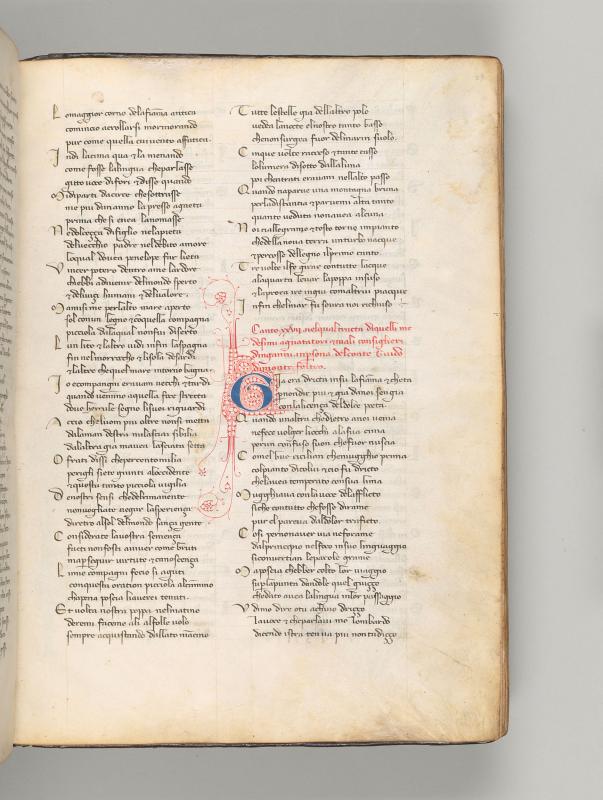 L omaggior corno dela fiama antica
comincio acrollarsi mormorando
pur come quella cui uento affatica
I ndi lacima qua & la menando
come fosse la lingua che parlasse
gitto uoce di fori & disse quando
M i diparti da circe che sottrasse
me piu dun anno la presso agaeta
prima che si enea la nomasse
N e dolceçça di figlio ne la pieta
del uecchio padre nel debito amore
loqual douea penelope far lieta
V incer potero dentro ame lardore
chebbi adiuenir del mondo sperto
& deli uiçi humani & del ualore
M a misi me per lalto mare aperto
sol con un legno & con quella compagna
picciola dalaqual non fui diserto
L un lito & laltro uidi infin la spagna
fin nel morrocho & lisola di sardi
& laltre che quel mare intorno bagna
I o e compagni erauam uecchi & tardi
quando uenimo aquella foce stretta
douo hercule segno li suoi riguardi
A cio che luom piu oltre non si metta
da la man destra mi lasciai sibilia
da laltra gia mauea lasciata setta
O frati dissi che per cento milia
perigli siete giunti aloccidente
& questa tanto picciola uigilia
D e nostri sensi che del rimanente
non uogliate negar lasperiença
diretro alsol del mondo sança gente
C onsiderate la uostra semença
fatti non fosti a uiuer come bruti
ma per seguir uirtute & conoscença
L i mie compagni fec io si aguti
con questa oration picciola al camino
ch apena poscia li auerei tenuti
E t uolta nostra poppa nel matino
de remi facemo ali al folle uolo
sempre acquistando dal lato mancino
T utte le stelle gia dell altro polo
uedea la nocte el nostro tanto basso
che non surgea fuor del marin suolo
C inque uolte racceso & tanto casso
lo lumera di sotto dalla luna
poi chentrati erauam nell alto passo
Q uando naparue una montagna bruna
per la distantia & paruemi alta tanto
quanto ueduta non auea alcuna
N oi callegramo & tosto torno impianto
che della noua terra un turbo nacque
& percosse del legno il primo canto
T re uolte il fe girar con tutte lacque
ala quarta leuar la poppa in suso
& la prora ire ingiu comaltrui piacque
I nfin chel mar fu soura noi richiuso
Canto xxvij nelqual tracta di quelli me
desimi aguatatori & mali consiglieri
dinganni in persona del conte Guido
di monte feltro
G ia era dricta in su la fiama & cheta
per non dir piu & gia da noi sen gia
con la licença del dolce poeta
Q uando unaltra che dietro a noi uenia
ne fece uolger liocchi ala sua cima
per un confuso suon che fuor nuscia
C ome l bue cicilian che mugghio prima
col pianto di colui & cio fu dricto
che lauea temperato con sua lima
M ugghiaua con la uoce dell afflicto
si che con tutto che fosse di rame
pur el parea dal dolor trafitto
C osi per non auer uia ne forame
dal principio nel foco in suo linguaggio
si conuertian le parole grame
M a poscia chebber colto lor uiaggio
su per la punta dandole quel guiçço
che dato auea la lingua in lor passaggio
V dimo dire o tu achui io driçço
la uoce & che parlaui mo lombardo
dicendo istra ten ua piu non tadiçço